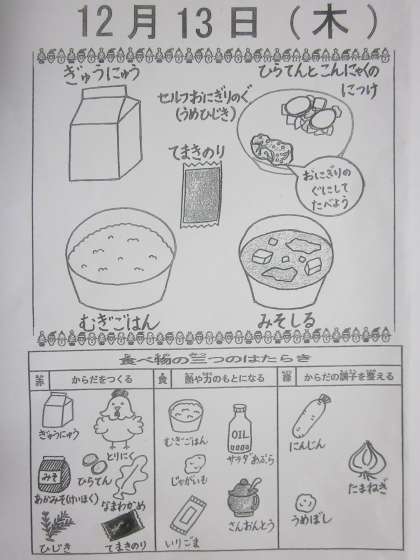 12月13日（木）
ぎゅうにゅう
セルフおにぎりのぐ
（うめひじき）
ひらてんとこんにゃくの
につけ
てまきのり
おにぎりの
ぐにして
たべよう
むぎごはん
みそしる
食べ物の三つのはたらき
赤 からだをつくる
黄 熱や力のもとになる
緑 からだの調子を整える
ぎゅうにゅう
とりにく
みそ
あかみそ(けいほく)
ひらてん
なまわかめ
ひじき
てまきのり
むぎごはん
OIL
サラダあぶら
じゃがいも
いりごま
さんおんとう
にんじん
たまねぎ
うめぼし